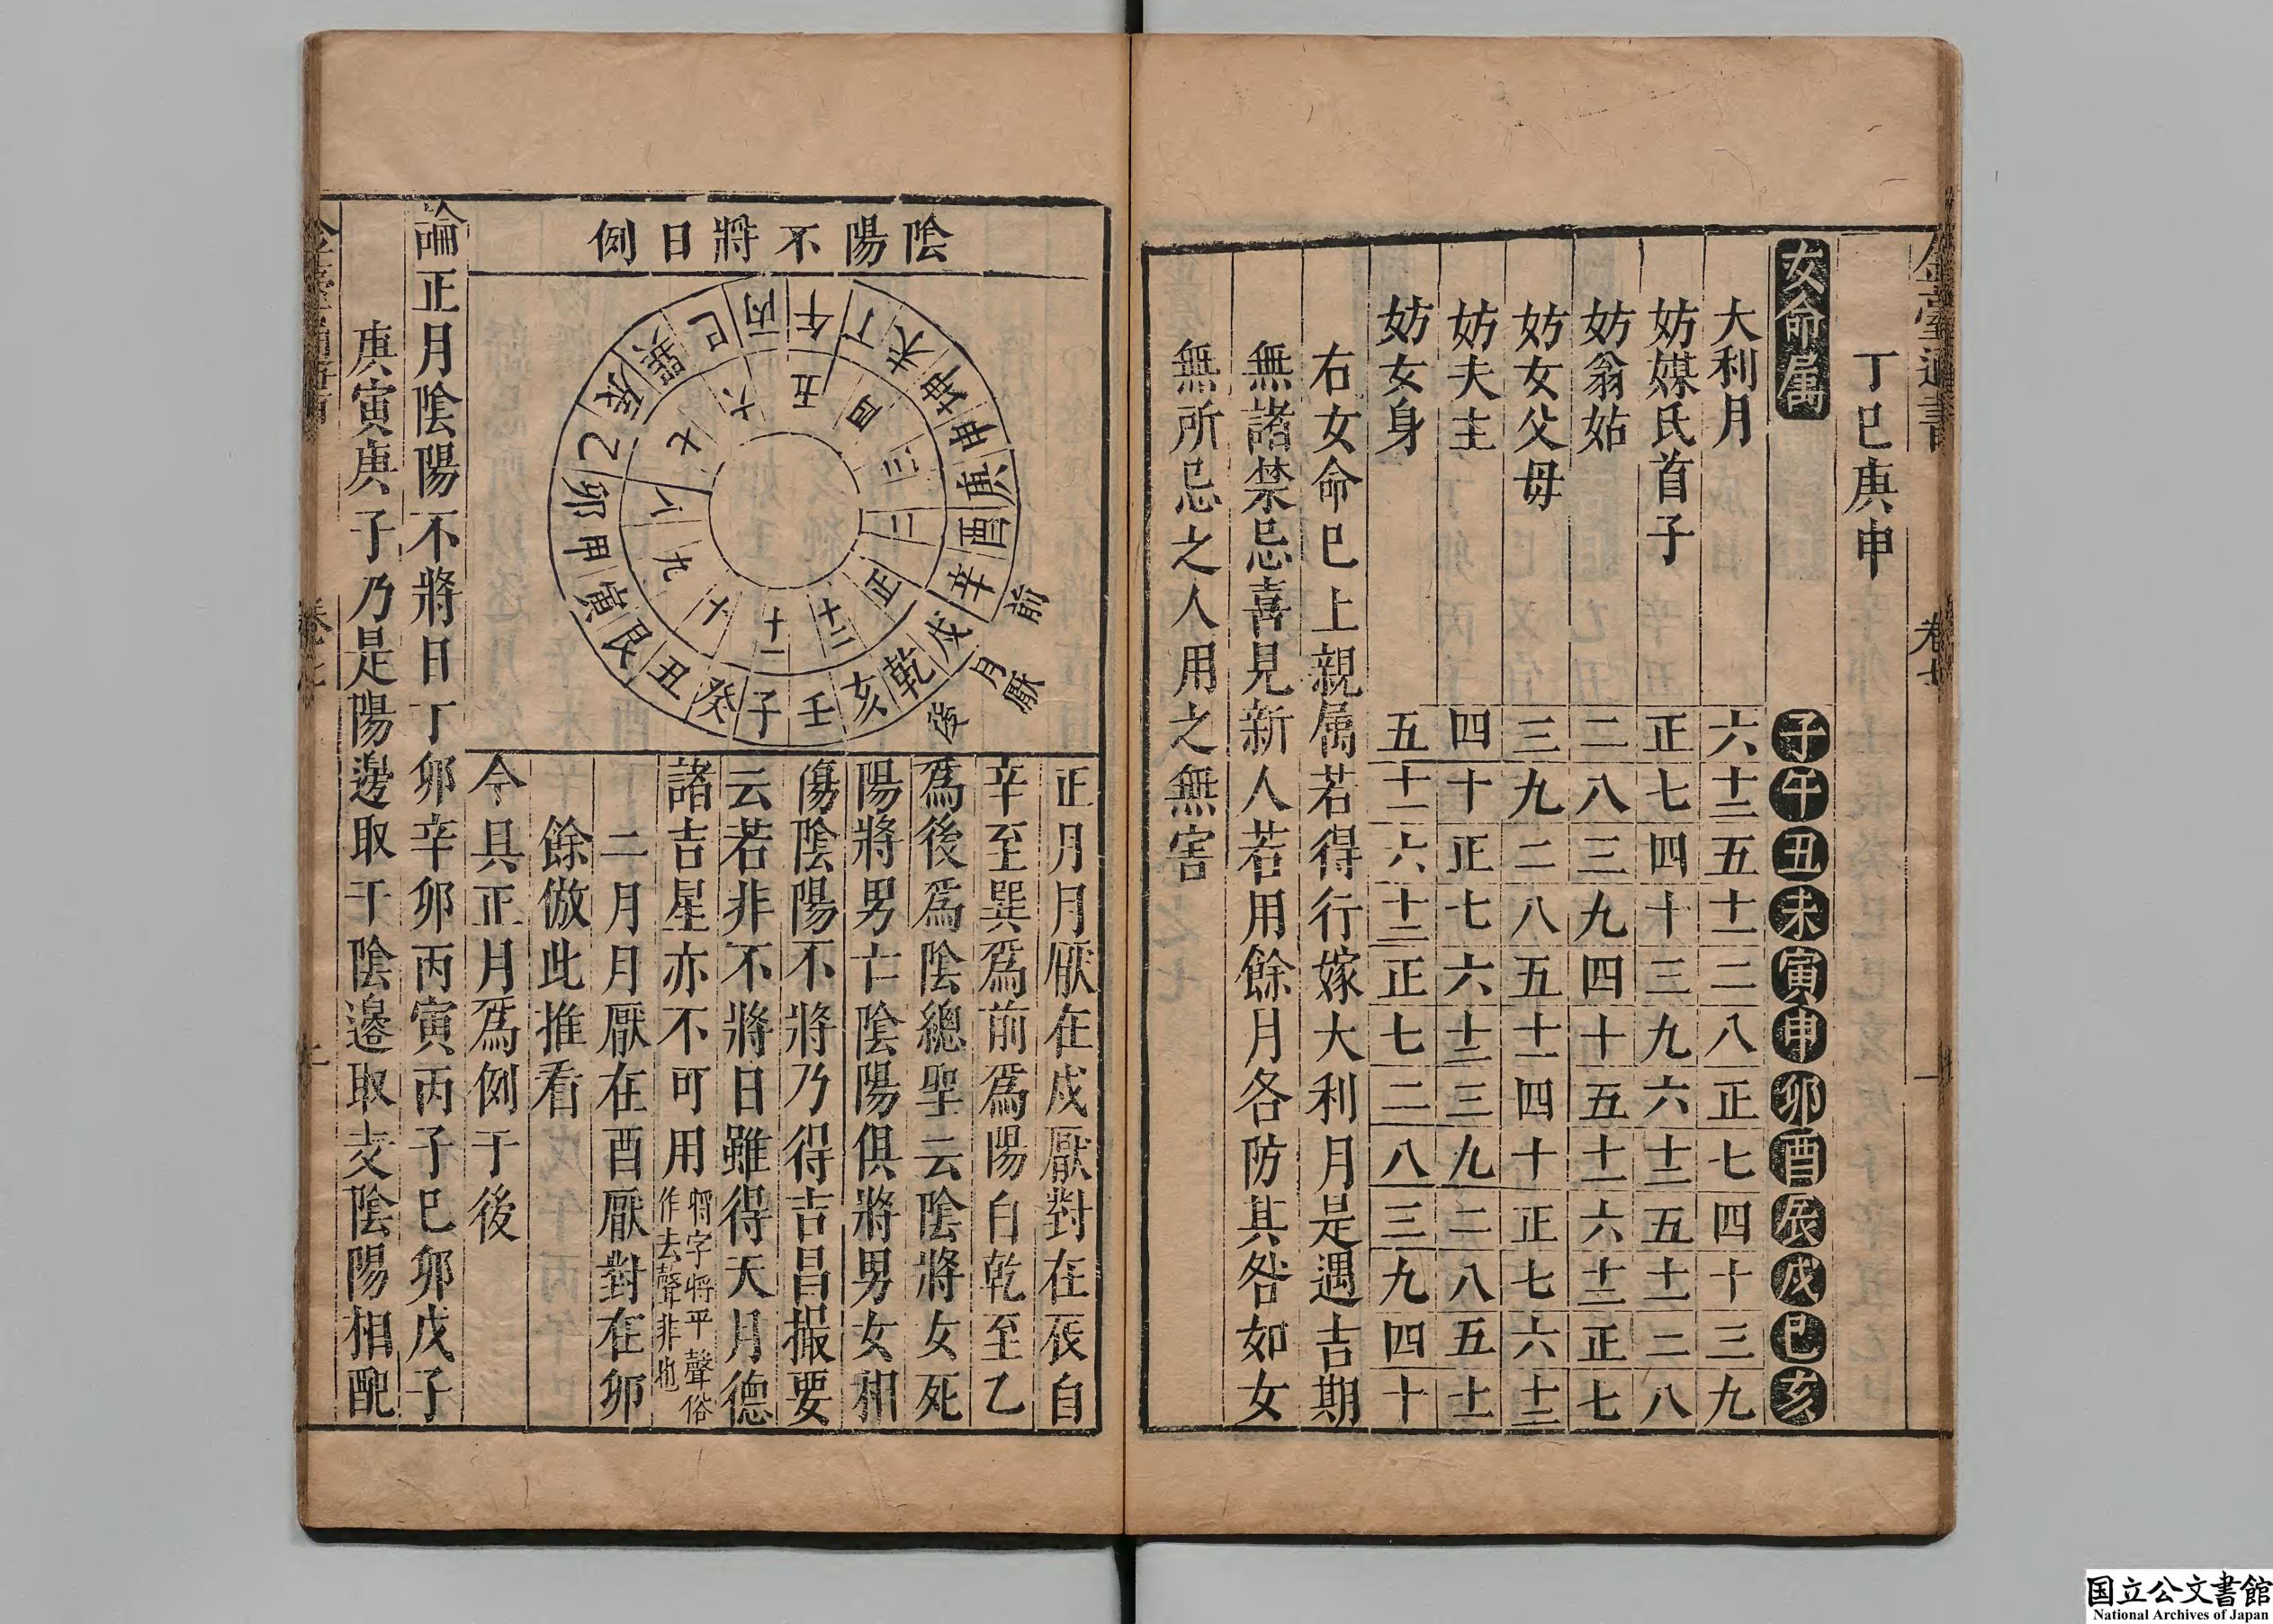 金臺通書
卷七
丁巳庚申
女命属 子午 丑未 寅申 卯酉 辰戌 巳亥
大利月 六 十二 五 十一 二 八 正 七 四 十 三 九
妨媒氏首子 正 七 四 十 三 九 六 十二 五 十一 二 八
妨翁姑 二 八 三 九 四 十 五 十一 六 十二 正 七
妨女父母 三 九 二 八 五 十一 四 十 正 七 六 十二
妨夫主 四 十 正 七 六 十二 三 九 二 八 五 十一
妨女身 五 十一 六 十二 正 七 二 八 三 九 四 十
右女命巳上親属若得行嫁大利月是遇吉期
無諸禁忌喜見新人若用餘月各防其咎如女
無所忌之人用之無害
陰陽不將日例
午丁未坤申庚酉辛戌乾亥壬子癸丑艮寅甲卯乙辰巽巳丙
五四三二正十二十一十九八七六
前
月厭
後
正月月厭在戌厭對在辰自
辛至巽爲前爲陽自乾至乙
爲後爲陰總聖云陰將女死
陽將男亡陰陽俱將男女相
傷陰陽不將乃得吉昌撮要
云若非不將日雖得天月德
諸吉星亦不可用
將字將平聲俗
作去聲非也
二月月厭在酉厭對在卯
餘倣此推看
今具正月爲例于後
論正月陰陽不將日丁卯辛卯丙寅丙子巳卯戊子
庚寅庚子乃是陽邊取干陰邊取支陰陽相配
卷七